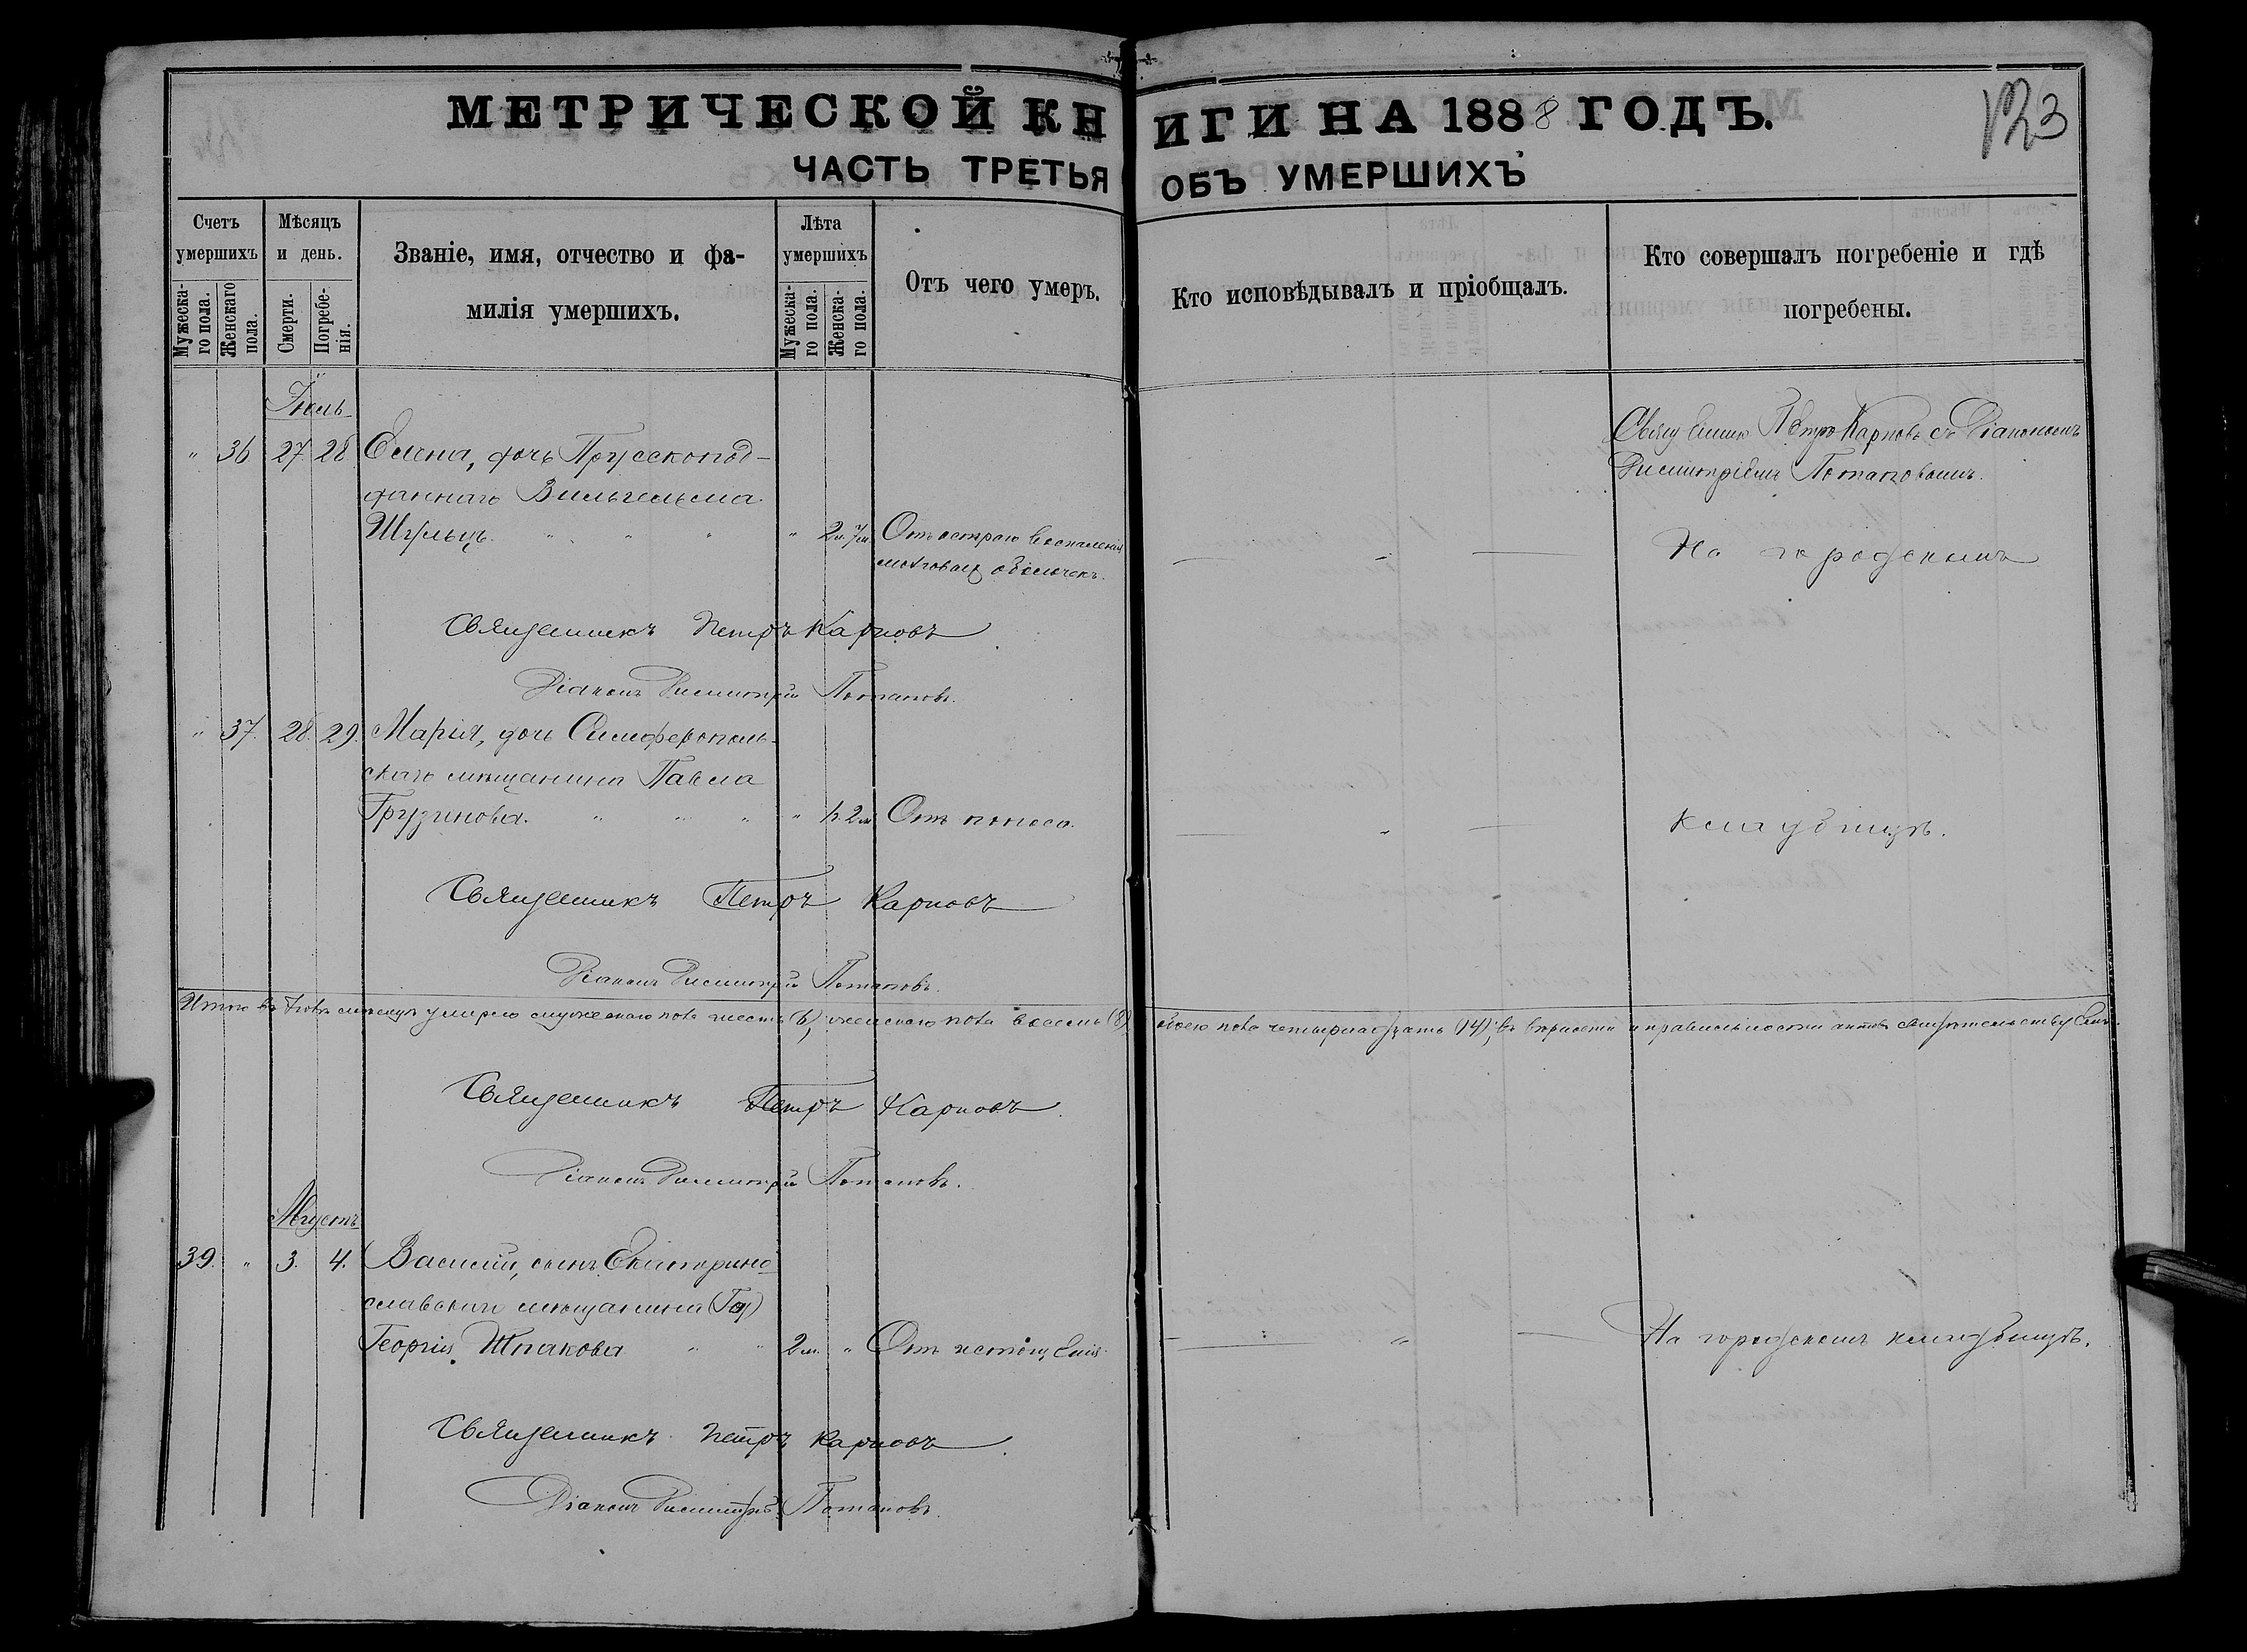 МЕТРИЧЕСКОЙ КНИГИ НА 1888 ГОДЪ.
123
ЧАСТЬ ТРЕТЬЯ ОБЪ УМЕРШИХЪ
Счетъ умершихъ
Мужескаго пола.
Женскаго пола.
Мѣсяцъ и день.
Смерти.
Погребенія.
Званіе, имя, отчество и фамилія умершихъ.
Лѣта умершихъ
Мужескаго пола.
Женскаго пола.
Отъ чего умеръ.
Кто исповѣдывалъ и пріобщалъ.
Кто совершалъ погребеніе и гдѣ погребены.
Іюль
" 36 27 28 Елена, дочь Прусскопод-
даннаго Вильгельма
Шульцъ. " " " " 2 л. 7 м. Отъ остраго воспаленія
мозговыхъ оболочекъ.
Священникъ Петръ Карповъ съ Діакономъ
Димитріемъ Потаповымъ.
На городскомъ
Священникъ Петръ Карповъ
Діаконъ Димитрій Потаповъ.
" 37. 28. 29. Марія, дочь Симферополь-
скаго мѣщанина Павла
Грузинова. " " " " 2 м. Отъ поноса.
кладбищѣ.
Священникъ Петръ Карповъ
Діаконъ Димитрій Потаповъ.
Итого въ Іюлѣ мѣсяцѣ умерло мужескаго пола шесть (6), женскаго пола восемь (8) обоего пола четырнадцать (14); въ вѣрности и правильности актовъ свидѣтельствуемъ.
Священникъ Петръ Карповъ.
Діаконъ Димитрій Потаповъ.
Августъ
39. " 3. 4. Василій, сынъ Екатерино-
славскаго мѣщанина
Георгія Шпакова " " 2 м. " Отъ истощенія
На городскомъ кладбищѣ.
Священникъ Петръ Карповъ.
Діаконъ Димитрій Потаповъ.